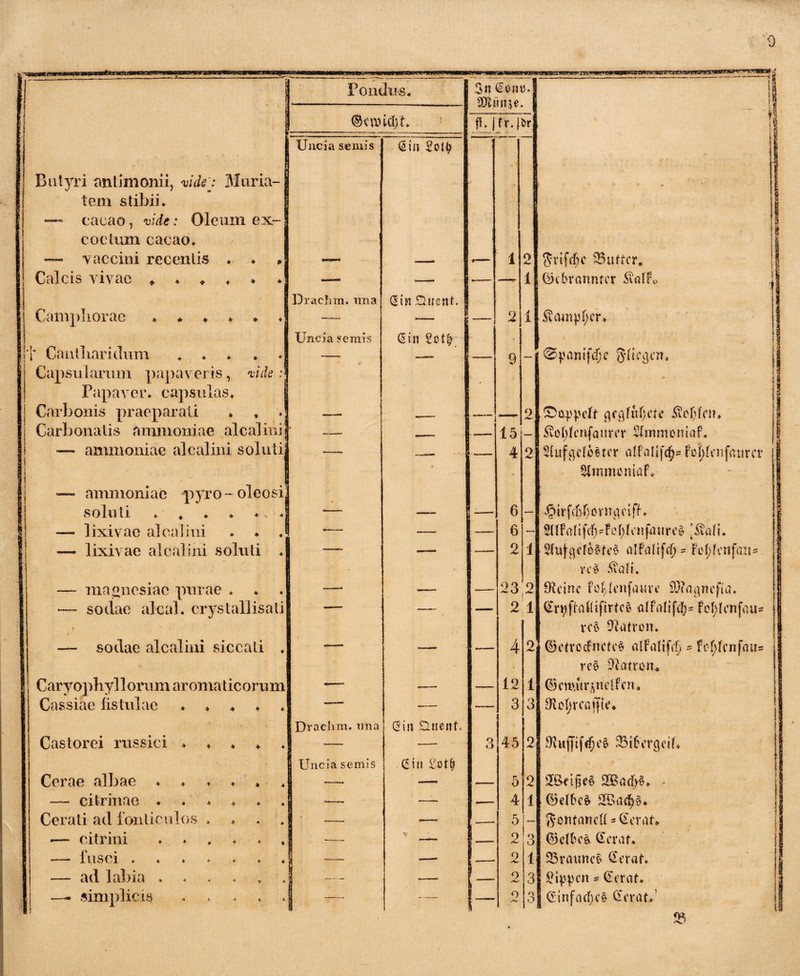 9
Pondus. In Conv. Münze.
Gewicht. fl. fr. dr
Uncia semis Ein Loth
Butyri antimonii, vide: Muria-
tem stibii.
— cacao, vide: Oleum ex-
coctum cacao.
— vaccini recentis . . . — — — 1 2 Frische Butter.
Calcis vivae . . . . . . — — — — 1 Gebrannter Kalk.
Drachm. una Ein Quent.
Camphorae . . . . . . — — — 2 1 Kampher.
Uncia semis Ein Loth
† Cantharidum . . . . . — — — 9 — Spanische Fliegen.
Capsularum papaveris, vide:
Papaver. capsulas.
Carbonis praeparati . . . — — — — 2 Doppelt geglühete Kohlen.
Carbonatis ammoniae alcalini — — — 15 — Kohlensaurer Ammoniak.
— ammoniae alcalini soluti — — — 4 2 Aufgelöster alkalisch-kohlensaurer
Ammoniak.
— ammoniae pyro-oleosi
soluti . . . . . . — — — 6 — Hirschhorngeist.
— lixivae alcalini . . . — — — 6 — Alkalisch-kohlensaures Kali.
— lixivae alcalini soluti . — — — 2 1 Aufgelöstes alkalisch-kohlensau-
res Kali.
— magnesiae purae . . . — — — 23 2 Reine kohlensaure Magnesia.
— sodae alcal. crystallisati — — — 2 1 Crystallisirtes alkalisch-kohlensau-
res Natron.
— sodae alcalini siccati . — — — 4 2 Getrocknetes alkalisch-kohlensau-
res Natron.
Caryophyllorum aromaticorum — — — 12 1 Gewürznelken.
Cassiae fistulae . . . . . — — — 3 3 Rohrcassie.
Drachm. una Ein Quent.
Castorei russici . . . . . — — 3 45 2 Russisches Bibergeil.
Uncia semis Ein Loth
Cerae albae . . . . . . — — — 5 2 Weißes Wachs.
— citrinae . . . . . . — — — 4 1 Gelbes Wachs.
Cerati ad fonticulos . . . . — — — 5 — Fontanell-Cerat.
— citrini . . . . . . — — — 2 3 Gelbes Cerat.
— fusci . . . . . . . — — — 2 1 Braunes Cerat.
— ad labia . . . . . . — — — 2 3 Lippen-Cerat.
— simplicis . . . . . — — — 2 3 Einfaches Cerat.
B